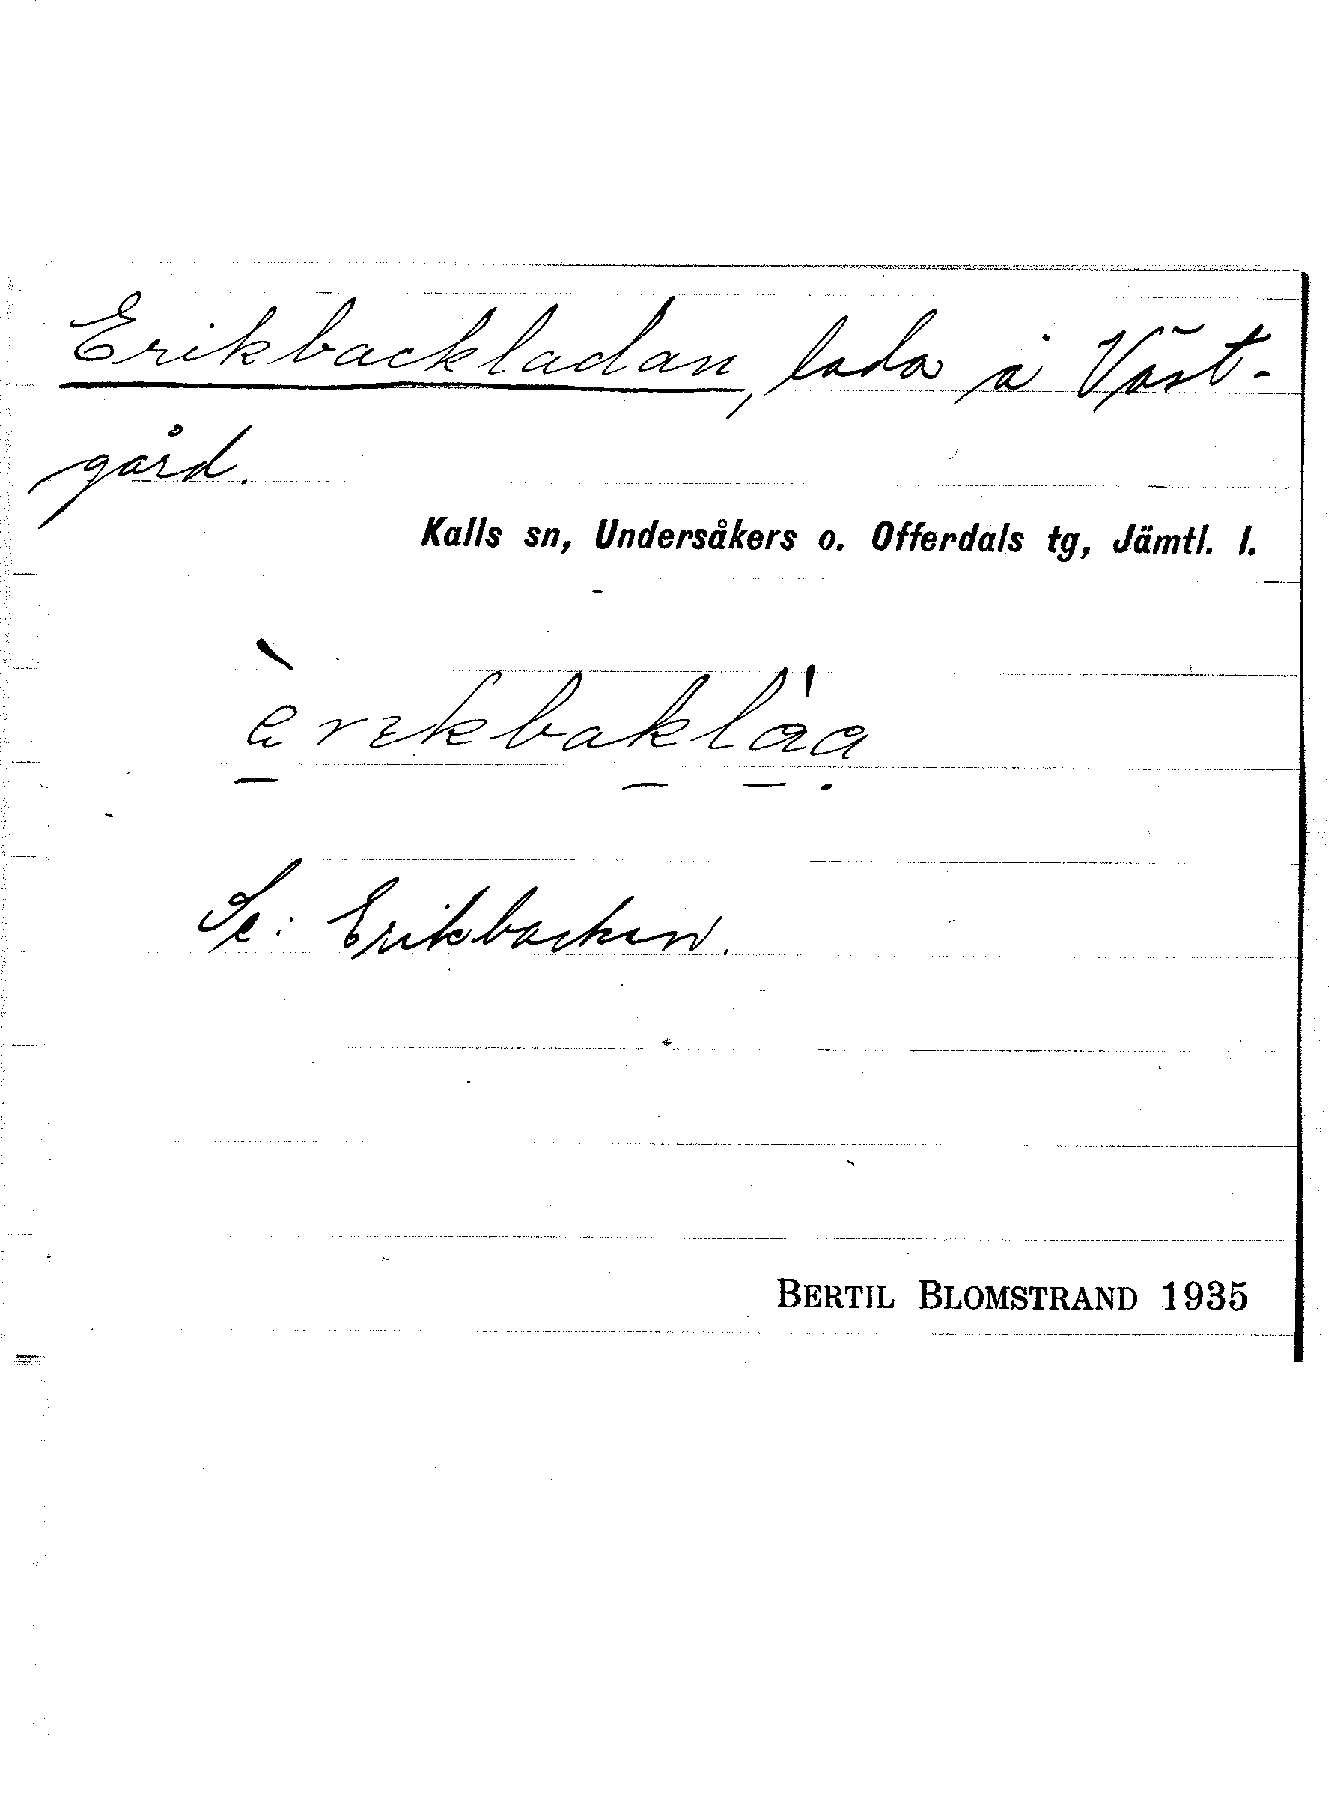 Erikbackladan, lada å Väst-
gård.
Kalls sn, Undersåkers o. Offerdals tg, Jämtl. l.
èrıkbaklàa
Se: Erikbacken.
BERTIL BLOMSTRAND 1935